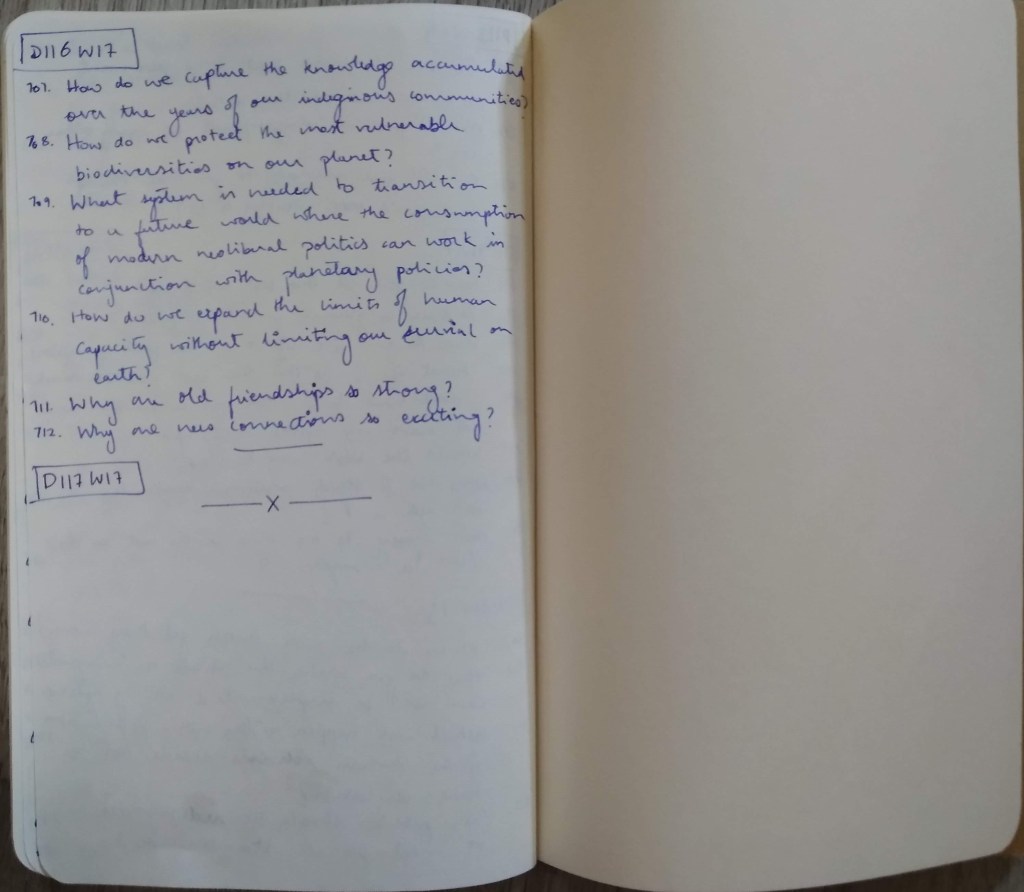 D116 W17
707. How do we capture the knowledge accumulated
over the years of our indeginous communities?
708. How do we protect the most vulnerable
biodiversities on our planet?
709. What system is needed to transition
to a future world where the consumption
of modern neoliberal politics can work in
conjunction with planetary policies?
710. How do we expand the limits of human
capacity without limiting our survival on
earth?
711. Why are old friendships so strong?
712. Why are new connections so exciting?
D117 W17
X